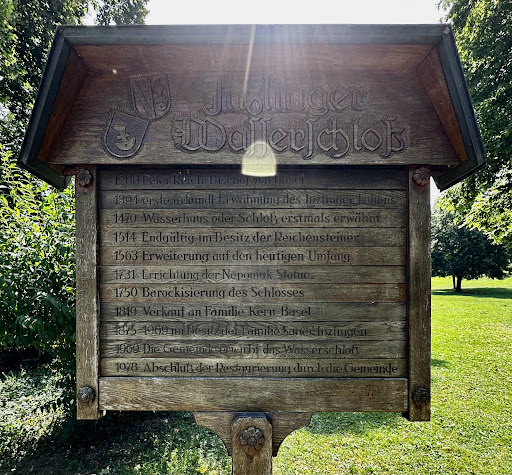 Inzlinger
Wasserschloß
1280 Peter Reich Bischof von Basel
1394 erste urkundl. Erwähnung des Inzlinger Lehens
1470 Wasserhaus oder Schloß erstmals erwähnt
1514 Endgültig im Besitz der Reichensteiner
1563 Erweiterung auf den heutigen Umfang
1731 Errichtung der Nepomuk Statue
1750 Barockisierung des Schlosses
1819 Verkauf an Familie Kern, Basel
1875-1969 im Besitz der Familie Sauer, Inzlingen
1969 Die Gemeinde erwirbt das Wasserschloß
1978 Abschluß der Restaurierung durch die Gemeinde